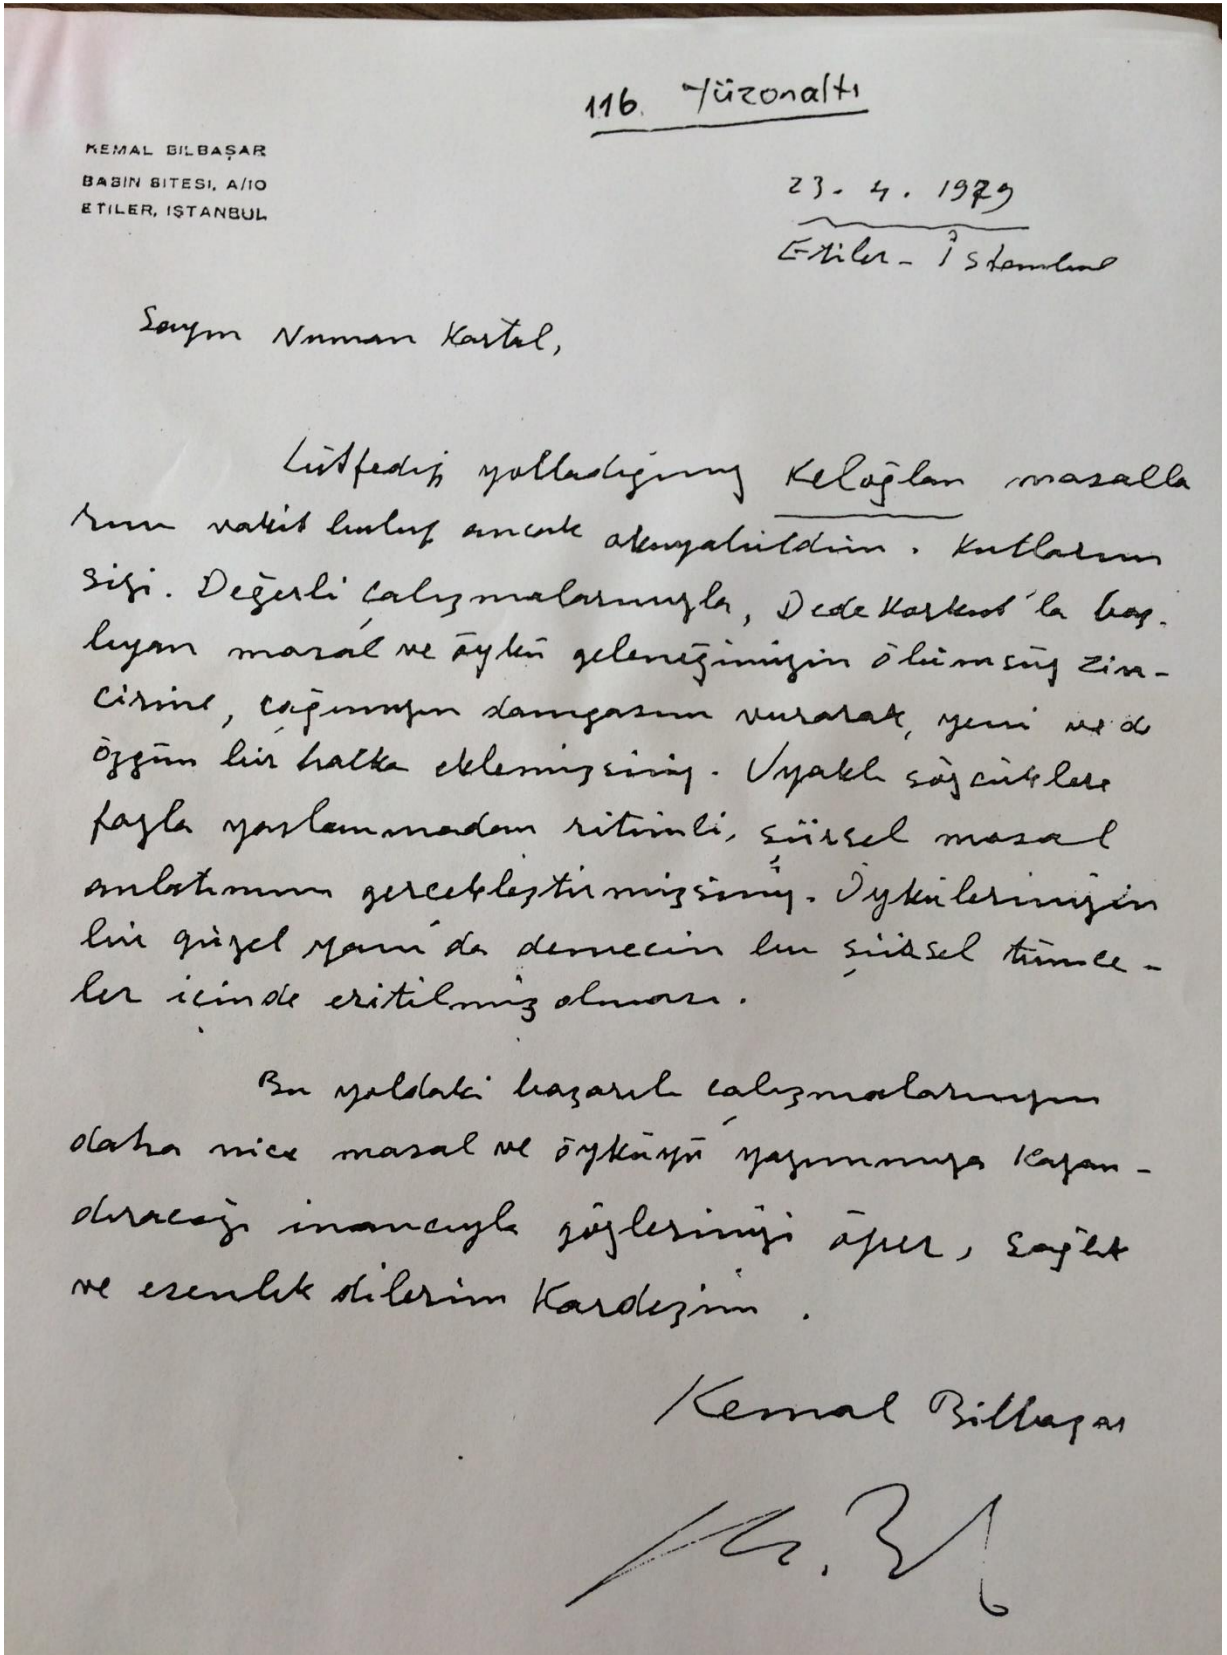 116. Yüzonaltı
KEMAL BİLBAŞAR
BASIN SİTESİ, A/10
ETİLER, İSTANBUL
23. 4. 1979
Etiler - İstanbul
Sayın Numan Kartal,
Lütfedip yolladığınız Keloğlan masalla
rını vakit bulup ancak okuyabildim. Kutlarım
sizi. Değerli çalışmalarınızla, Dede Korkut'la baş-
lıyan masal ve öykü geleneğimizin ölümsüz zin-
cirine, çağımızın damgasını vurarak, yeni ve de
özgün bir halka eklemişsiniz. Uyaklı sözcüklere
fazla yaslanmadan ritimli, şiirsel masal
anlatımını gerçekleştirmişsiniz. Öykülerinizin
bir güzel yanı da demecin bu şiirsel tümce-
ler içinde eritilmiş olması.
Bu yoldaki başarılı çalışmalarınızın
daha nice masal ve öyküyü yazınımıza kazan-
dıracağı inancıyla gözlerinizi öper, sağlık
ve esenlik dilerim Kardeşim.
Kemal Bilbaşar
K. B